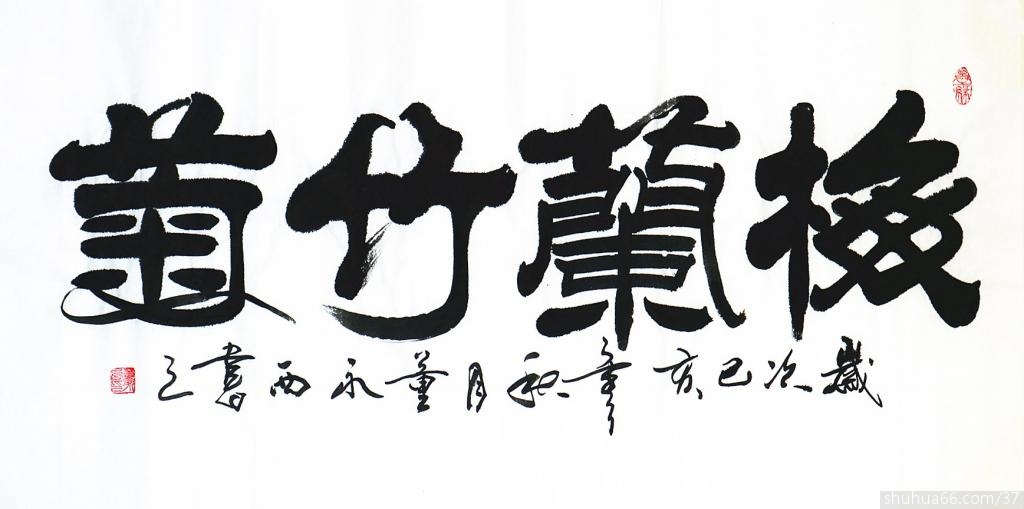 梅蘭竹菊
歲次己亥年秋月董永西書之
shuhua66.com/37